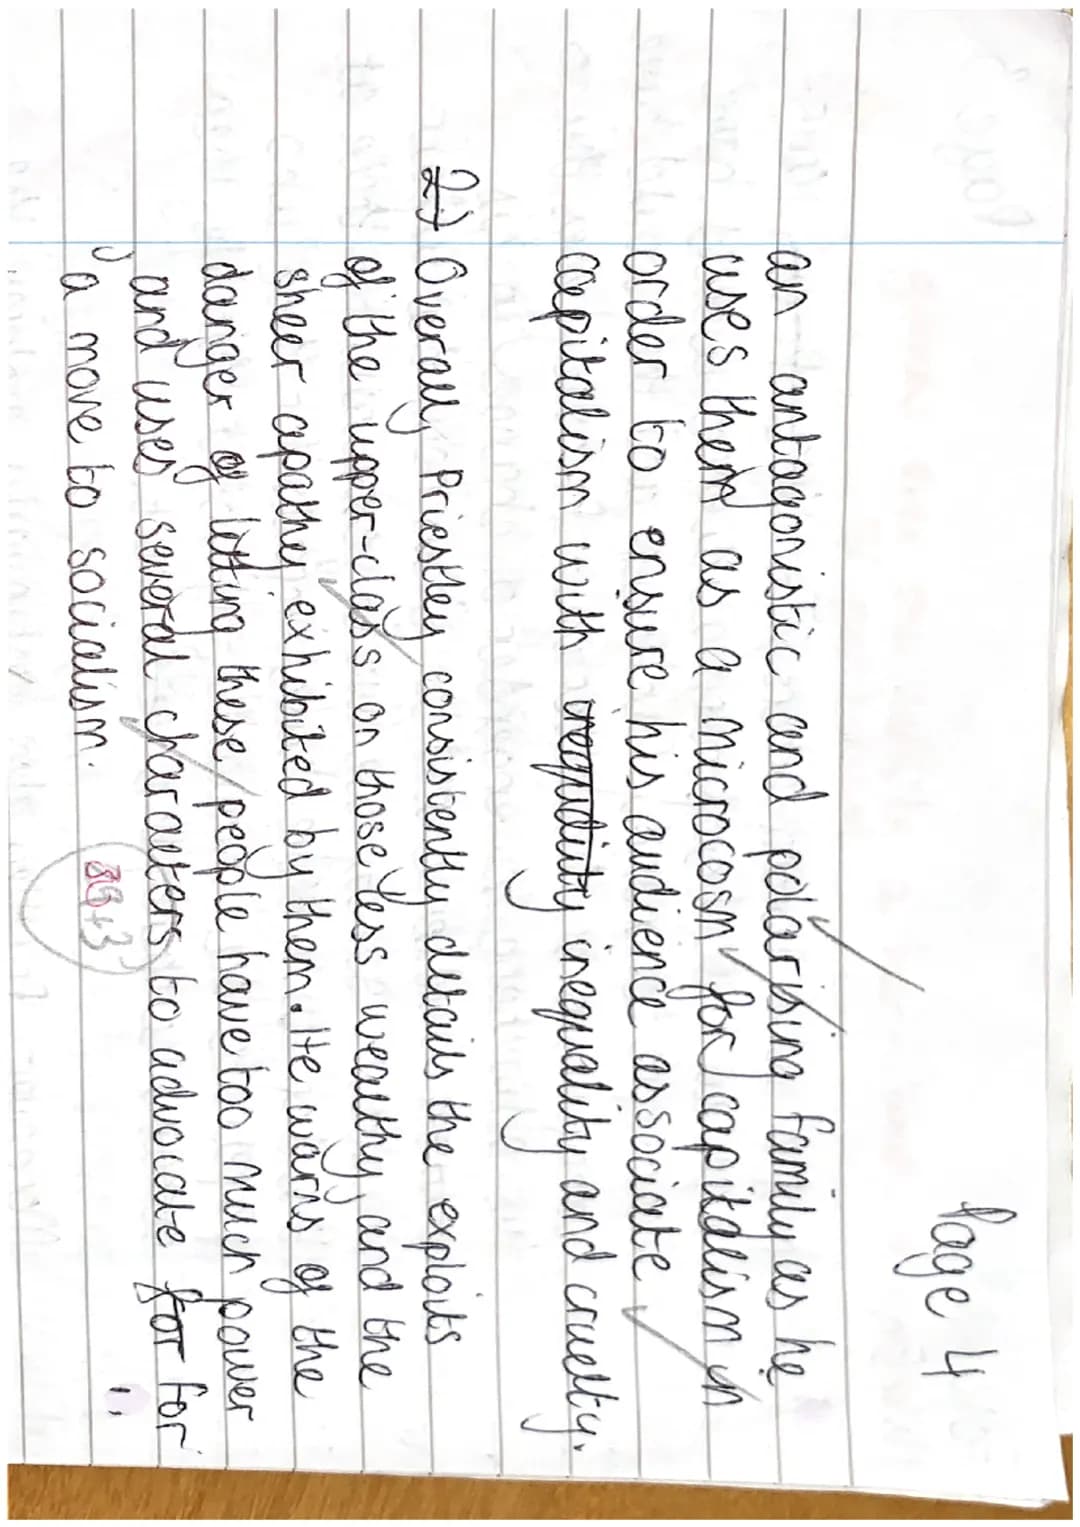 Page 4
an antagonistic and polarising family as he
uses them as a microcosm for capitalism in
order to ensure his audience associate
capitalism with inequality inequality and cruelty.
2) Overall, Priestley consistently details the exploits
of the upper-class on those less weathy, and the
sheer apathy exhibited by them. He warns of the
danger of letting these people have too much power
and uses several characters to advocate for for
a move to socialism.